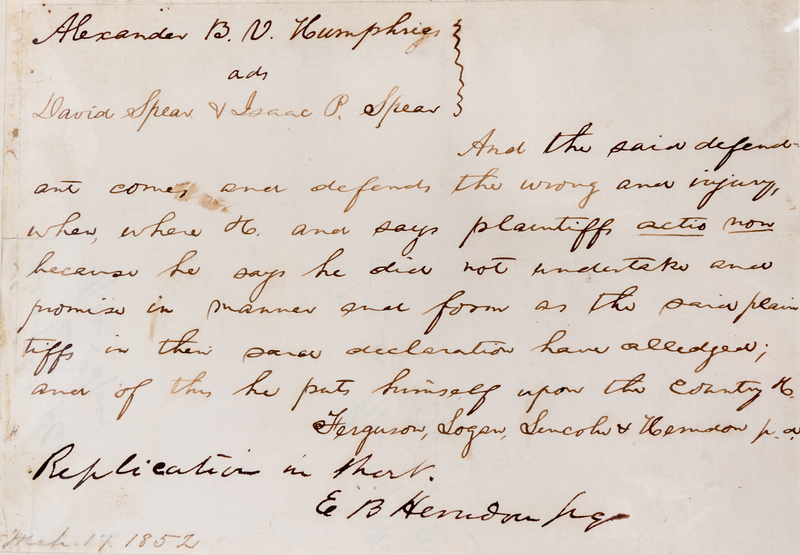 Alexander B. V. Humphries
ads
David Spear & Isaac P. Spear
And the said defend-
ant comes and defends the wrong and injury,
when, where &c. and says plaintiffs actio non
because he says he did not undertake and
promise in manner and form as the said plain
tiffs in their said declaration have alledged;
and of this he puts himself upon the County &c.
Ferguson, Logan, Lincoln & Herndon p. d.
Replication in short.
E B Herndon p q
Mch. 17. 1852